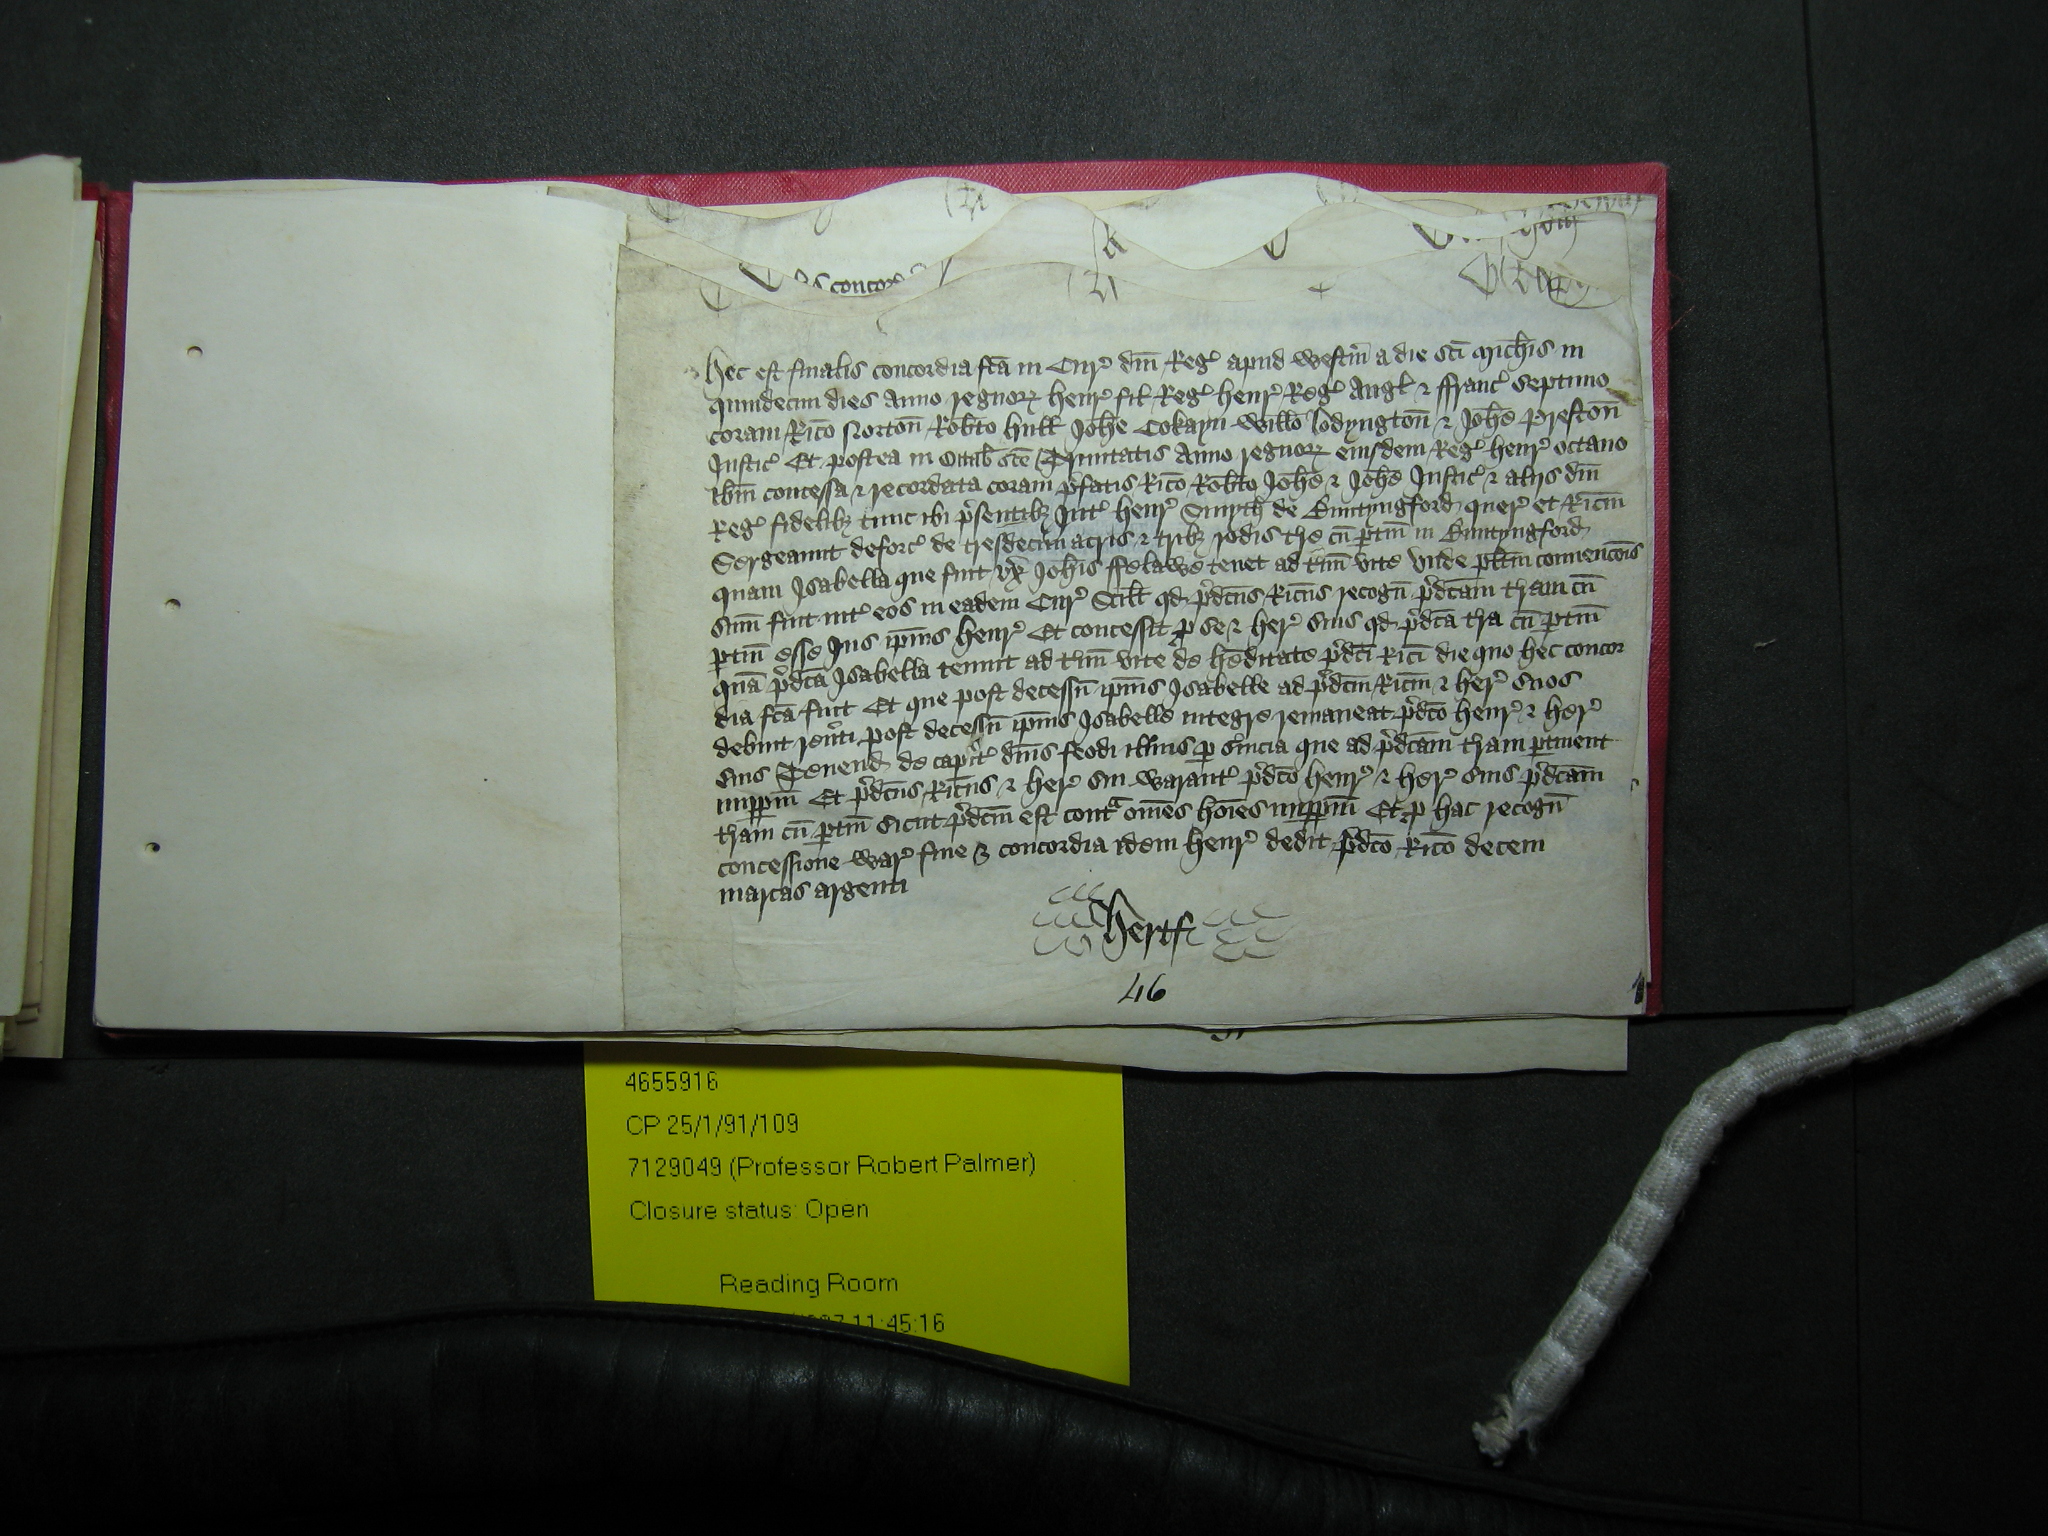 Hec est finalis concordia fc̄a in Cur' dn̄i Reg' apud Westm̄ a die sc̄i Mich̄is in
quindecim dies Anno regnoꝝ Henr' fil' Reg' Henr' Reg' Angl' & ffranc' septimo
coram Ric̄o Norton̄ Rob̄to Hull' Joh̄e Cokayn Will̄o Lodyngton̄ & Joh̄e Preston̄
Justic' Et postea in Octab̄ sc̄e Trinitatis Anno regnoꝝ eiusdem Reg' Henr' octauo
ib̄m concessa & recordata coram p̄fatis Ric̄o Rob̄to Joh̄e & Joh̄e Justic' & aliis dn̄i
Reg' fidelibꝫ tunc ibi p̄sentibꝫ Int' Henr' Smyth de Buntyngford quer' et Ric̄m
Sergeaunt deforc' de tresdecim acris & tribꝫ rodis t̄re cū ptin̄ in Buntyngford
quam Isabella que fuit vx' Joh̄is ffelawe tenet ad t̄m̄ vite Vnde pl̄itm conuenc̄ois
sum̄ fuit int' eos in eadem Cur' Scil̄t qd p̄dc̄us Ric̄us recogn̄ p̄dc̄am t̄ram cū
ꝑtin̄ esse Jus ip̄ius Henr' Et concessit ꝑ se & her' suis qd p̄dc̄a t̄ra cū ꝑtin̄
quā p̄dc̄a Isabella tenuit ad t̄m̄ vite de h̄editate p̄dc̄i Ric̄i die quo hec concor
dia fc̄a fuit Et que post decessū ip̄ius Isabelle ad p̄dc̄m Ric̄m & her' suos
debuit reu̓ti post decessū ip̄ius Isabelle integre remaneat p̄dc̄o Henr' & her'
suis Tenend de capit' dn̄is feodi illius ꝑ s̓uicia que ad p̄dc̄am t̄ram ꝑtinent
imꝑpm̄ Et p̄dc̄us Ric̄us & her' sui Warant' p̄dc̄o Henr' & her' suis p̄dc̄am
t̄ram cū ꝑtin̄ sicut p̄dc̄m est contᵃ om̄es ho̓ies imꝑpm̄ Et ꝑ hac recogn̄
concessione War' fine & concordia idem Henr' dedit p̄dc̄o Ric̄o decem
marcas argenti
Hertf
46
4655916
CP 25/1/91/109
7129049 (Professor Robert Palmer)
Closure status: Open
Reading Room
11:45:16